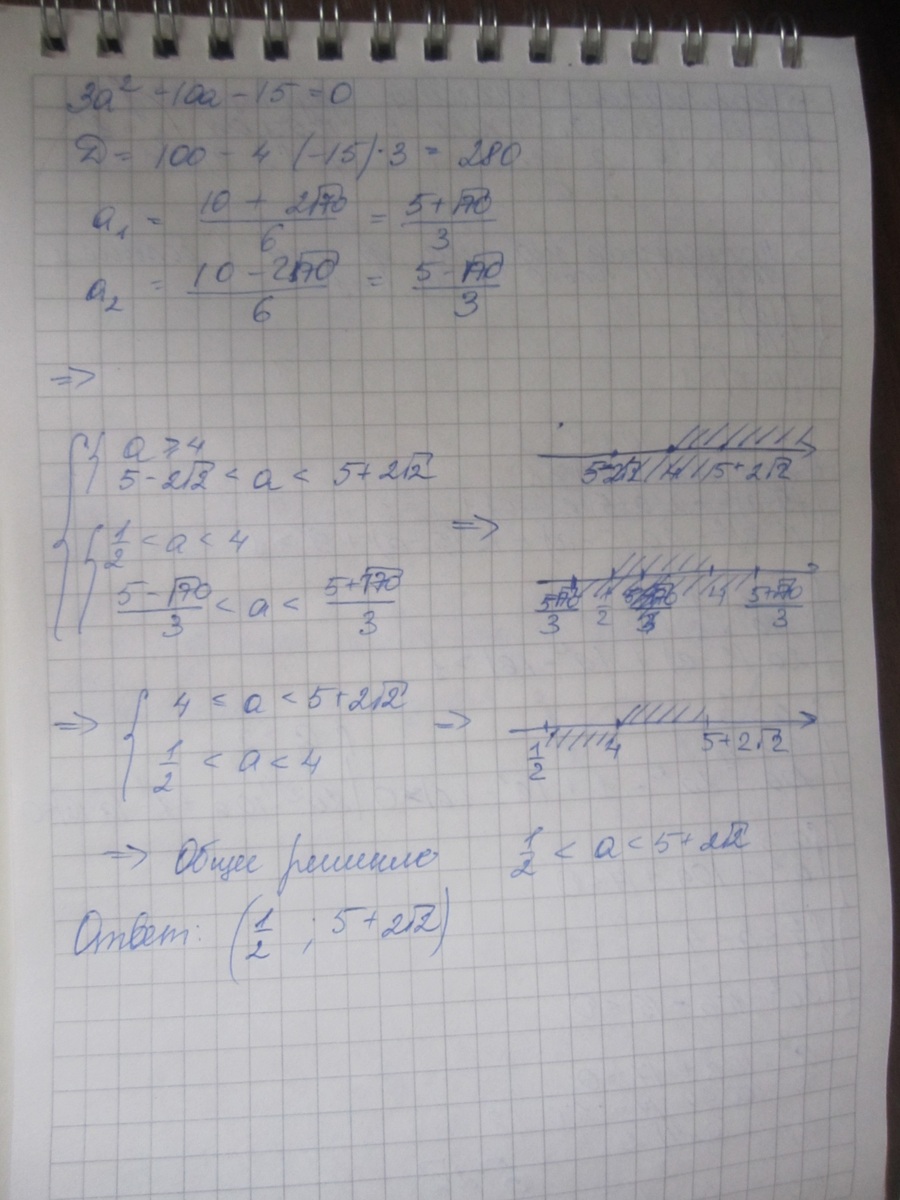 3a² - 10a - 15 = 0
D = 100 - 4 (-15)·3 = 280
a₁ = (10 + 2√70)/6 = (5+√70)/3
a₂ = (10 - 2√70)/6 = (5-√70)/3
=>
a ≥ 4
5-2√2 < a < 5+2√2
5-2√2 4 5+2√2
1/2 < a < 4 =>
(5-√70)/3 < a < (5+√70)/3
(5-√70)/3 1/2 4 (5+√70)/3
=> 4 < a < 5+2√2 =>
1/2 < a < 4
1/2 4 5+2√2
=> Общее решение 1/2 < a < 5+2√2
Ответ: (1/2 ; 5+2√2)